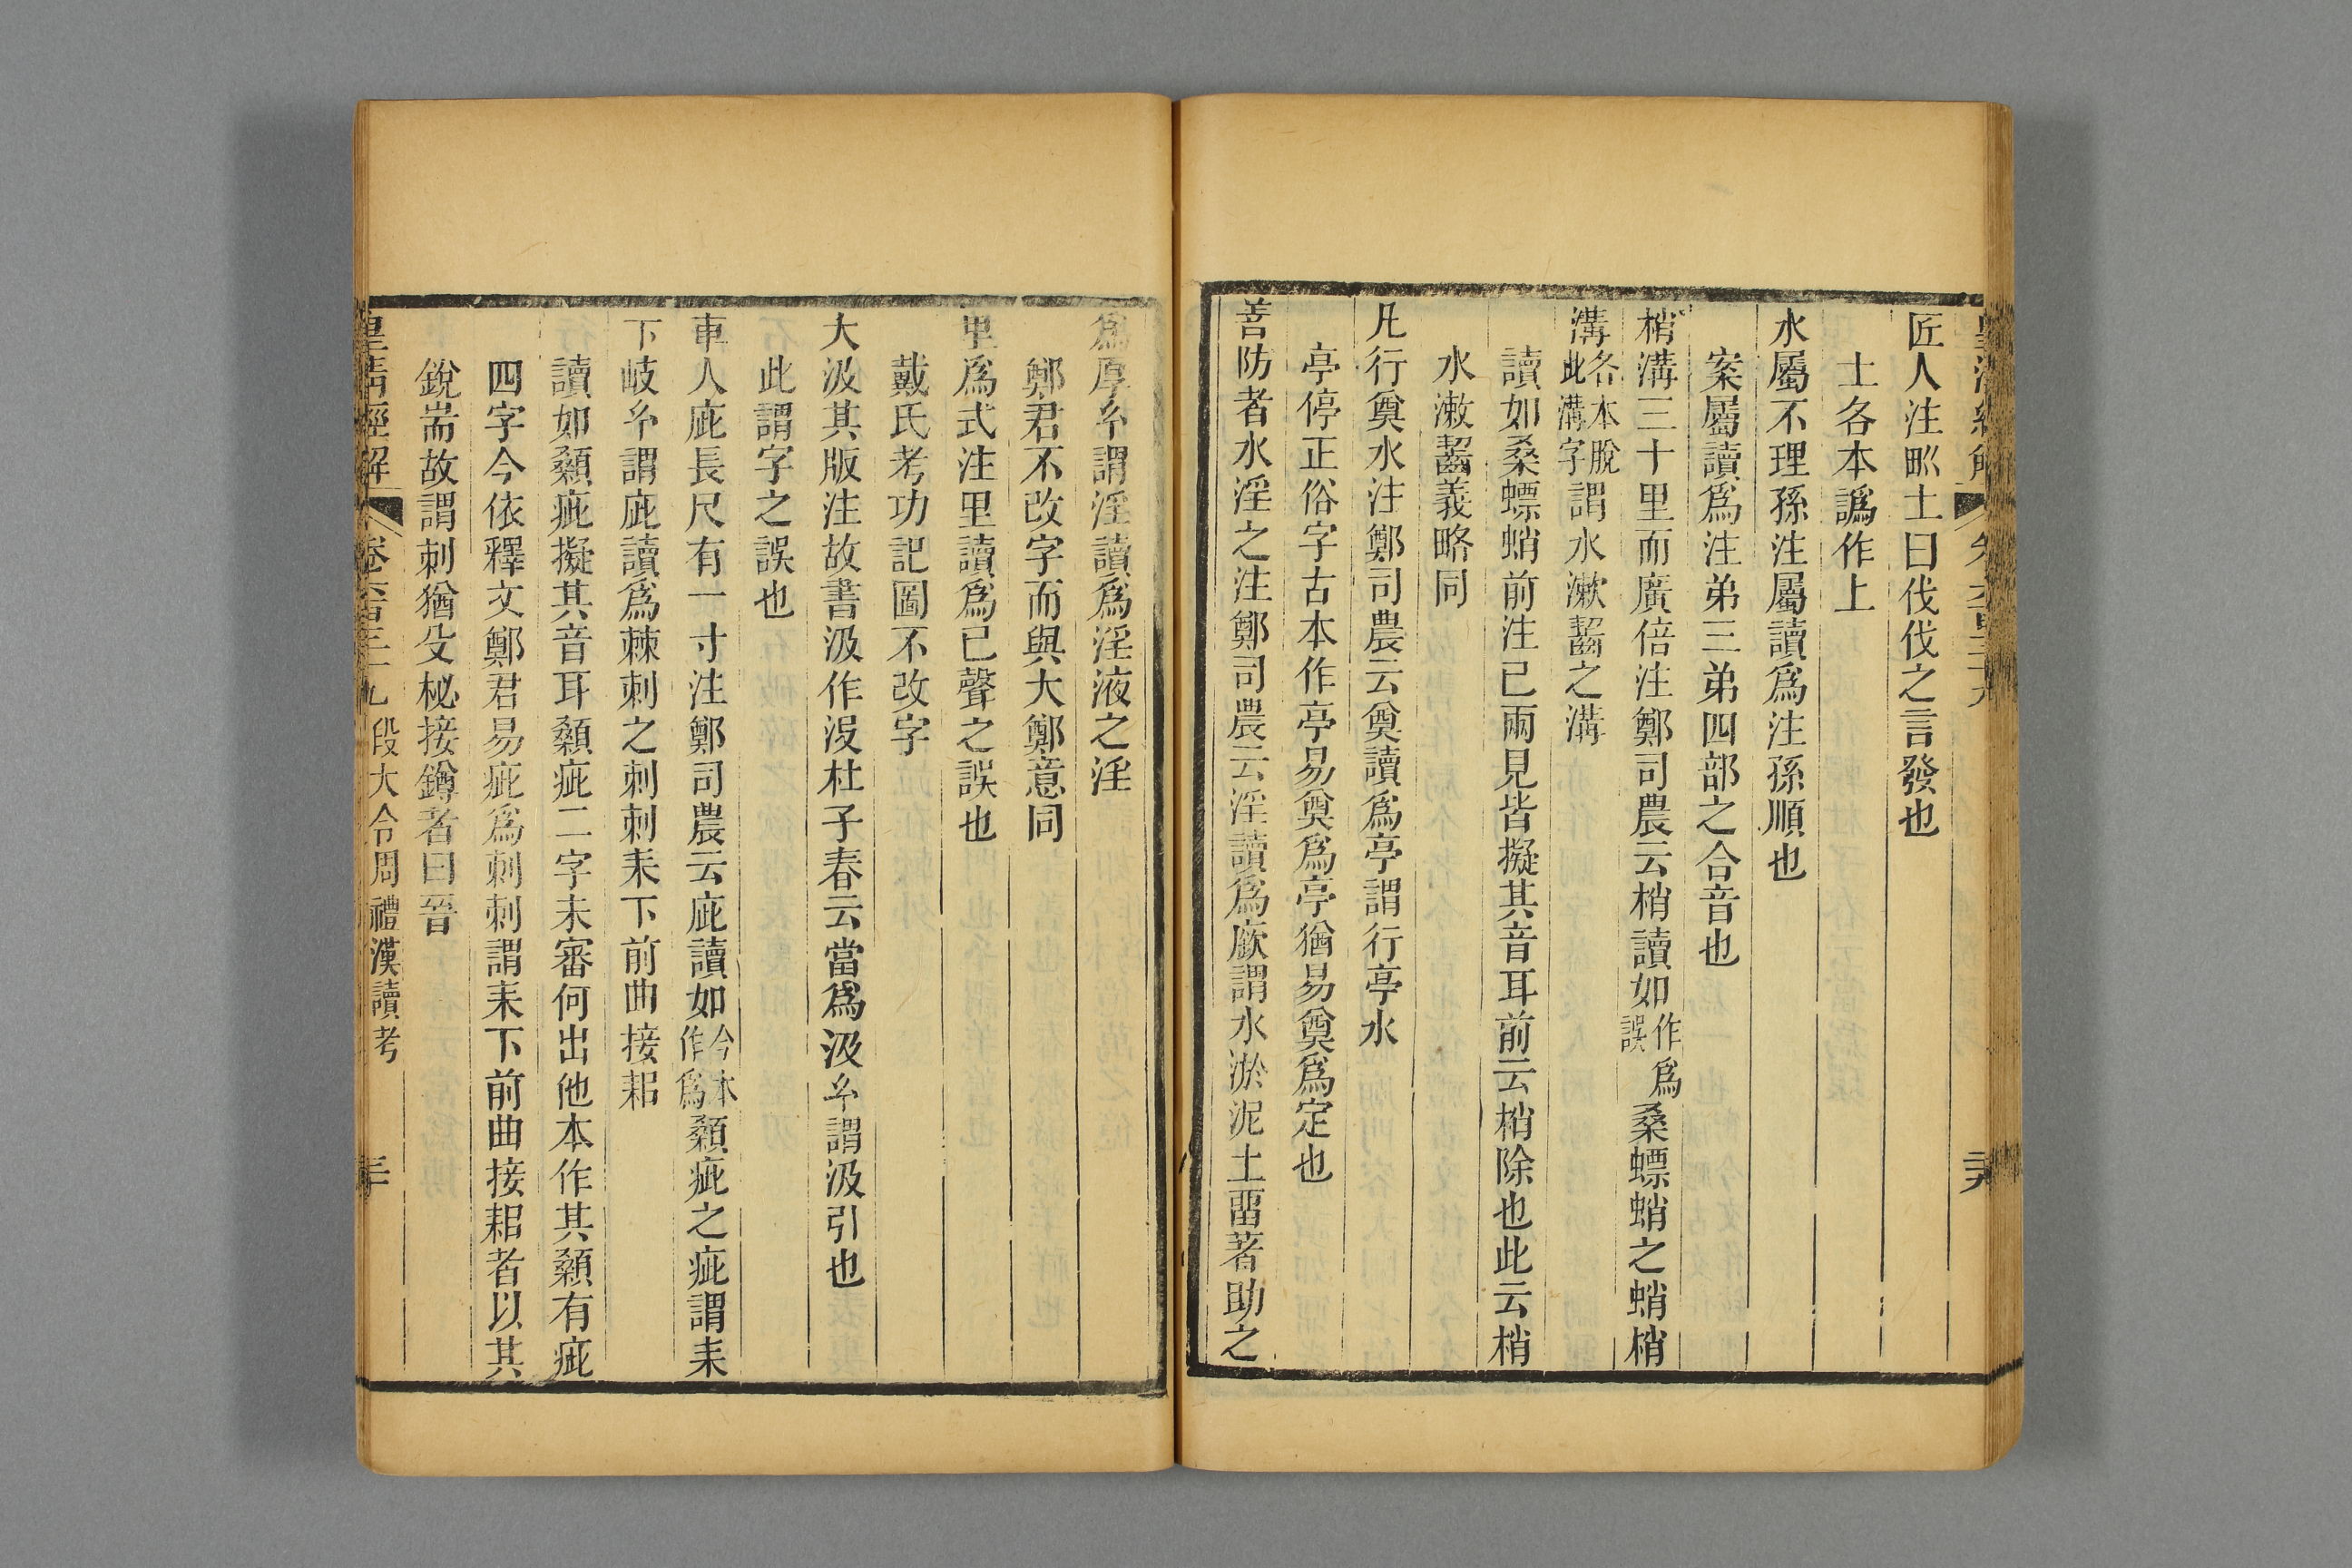 匠人注畎土曰伐伐之言發也
土各本譌作上
水屬不理孫注屬讀爲注孫順也
案屬讀爲注弟三弟四部之合音也
梢溝三十里而廣倍注鄭司農云梢讀如作爲誤桑螵蛸之蛸梢
溝各本脫此溝字謂水漱齧之溝
讀如桑螵蛸前注已兩見皆擬其音耳前云梢除也此云梢
水漱齧義略同
凡行奠水注鄭司農云奠讀爲亭謂行亭水
亭停正俗字古本作亭易奠爲亭猶易奠爲定也
善防者水淫之注鄭司農云淫讀爲廞謂水淤泥土畱著助之
爲厚𠂹謂淫讀爲淫液之淫
鄭君不改字而與大鄭意同
里爲式注里讀爲已聲之誤也
戴氏考功記圖不改字
大汲其版注故書汲作沒杜子春云當爲汲𠂹謂汲引也
此謂字之誤也
車人庛長尺有一寸注鄭司農云庛讀如今本作爲顙疵之疵謂耒
下岐𠂹謂庛讀爲棘刺之刺刺耒下前曲接耜
讀如顙疵擬其音耳顙疵二字未審何出他本作其顙有疵
四字今依釋文鄭君易疵爲刺刺謂耒下前曲接耜者以其
銳耑故謂刺猶殳柲接鐏者曰晉
皇清經解 卷六百三十九 段大令周禮漢讀考 三十